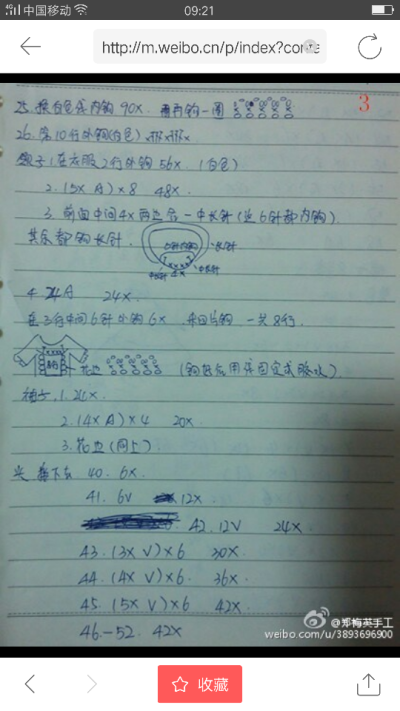 中国移动 09:21
http://m.weibo.cn/p/index?conta
3
25. 换白色 内钩 90X. 再钩一圈
26. 第10行外钩(白色)
(在衣服2行外钩 56X. (白色)
2. (5X A)×8 48X.
3. 前面中间4X两边各一中长针(这6针都内钩)
其余都钩长针.
6针内钩 长针
中长针 4X 中长针
4. 24A 24X.
在3行中间6针外钩6X. 来回片钩 一共8行.
花边
袖子. 1. 24X.
2. (4X A)×4 20X.
3. 花边(同上)
头 接下去 40. 6X.
41. 6V 12X.
42. 12V 24X
43. (3X V)×6 30X
44. (4X V)×6. 36X.
45. (5X V)×6 42X
46.-52. 42X
@郑梅英手工
weibo.com/u/3893696900
收藏